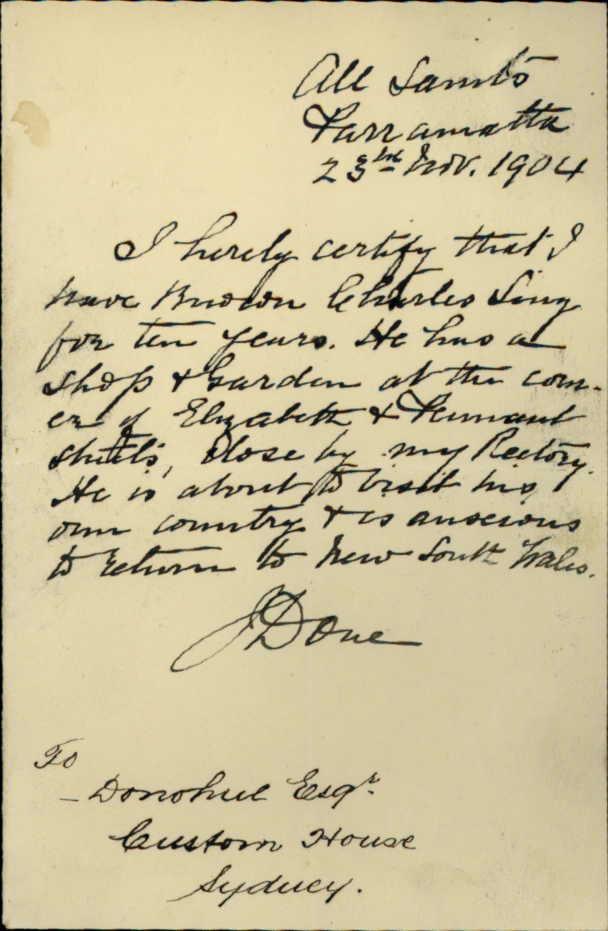 All Saints
Parramatta
23rd Nov. 1904
I hereby certify that I
have known Charles Sing
for ten years. He has a
shop & Garden at the corn-
er of Elizabeth & Pennant
streets, close by my Rectory.
He is about to visit his
own country & is anxious
to return to New South Wales.
J Done
To
– Donohue Esqr.
Custom House
Sydney.